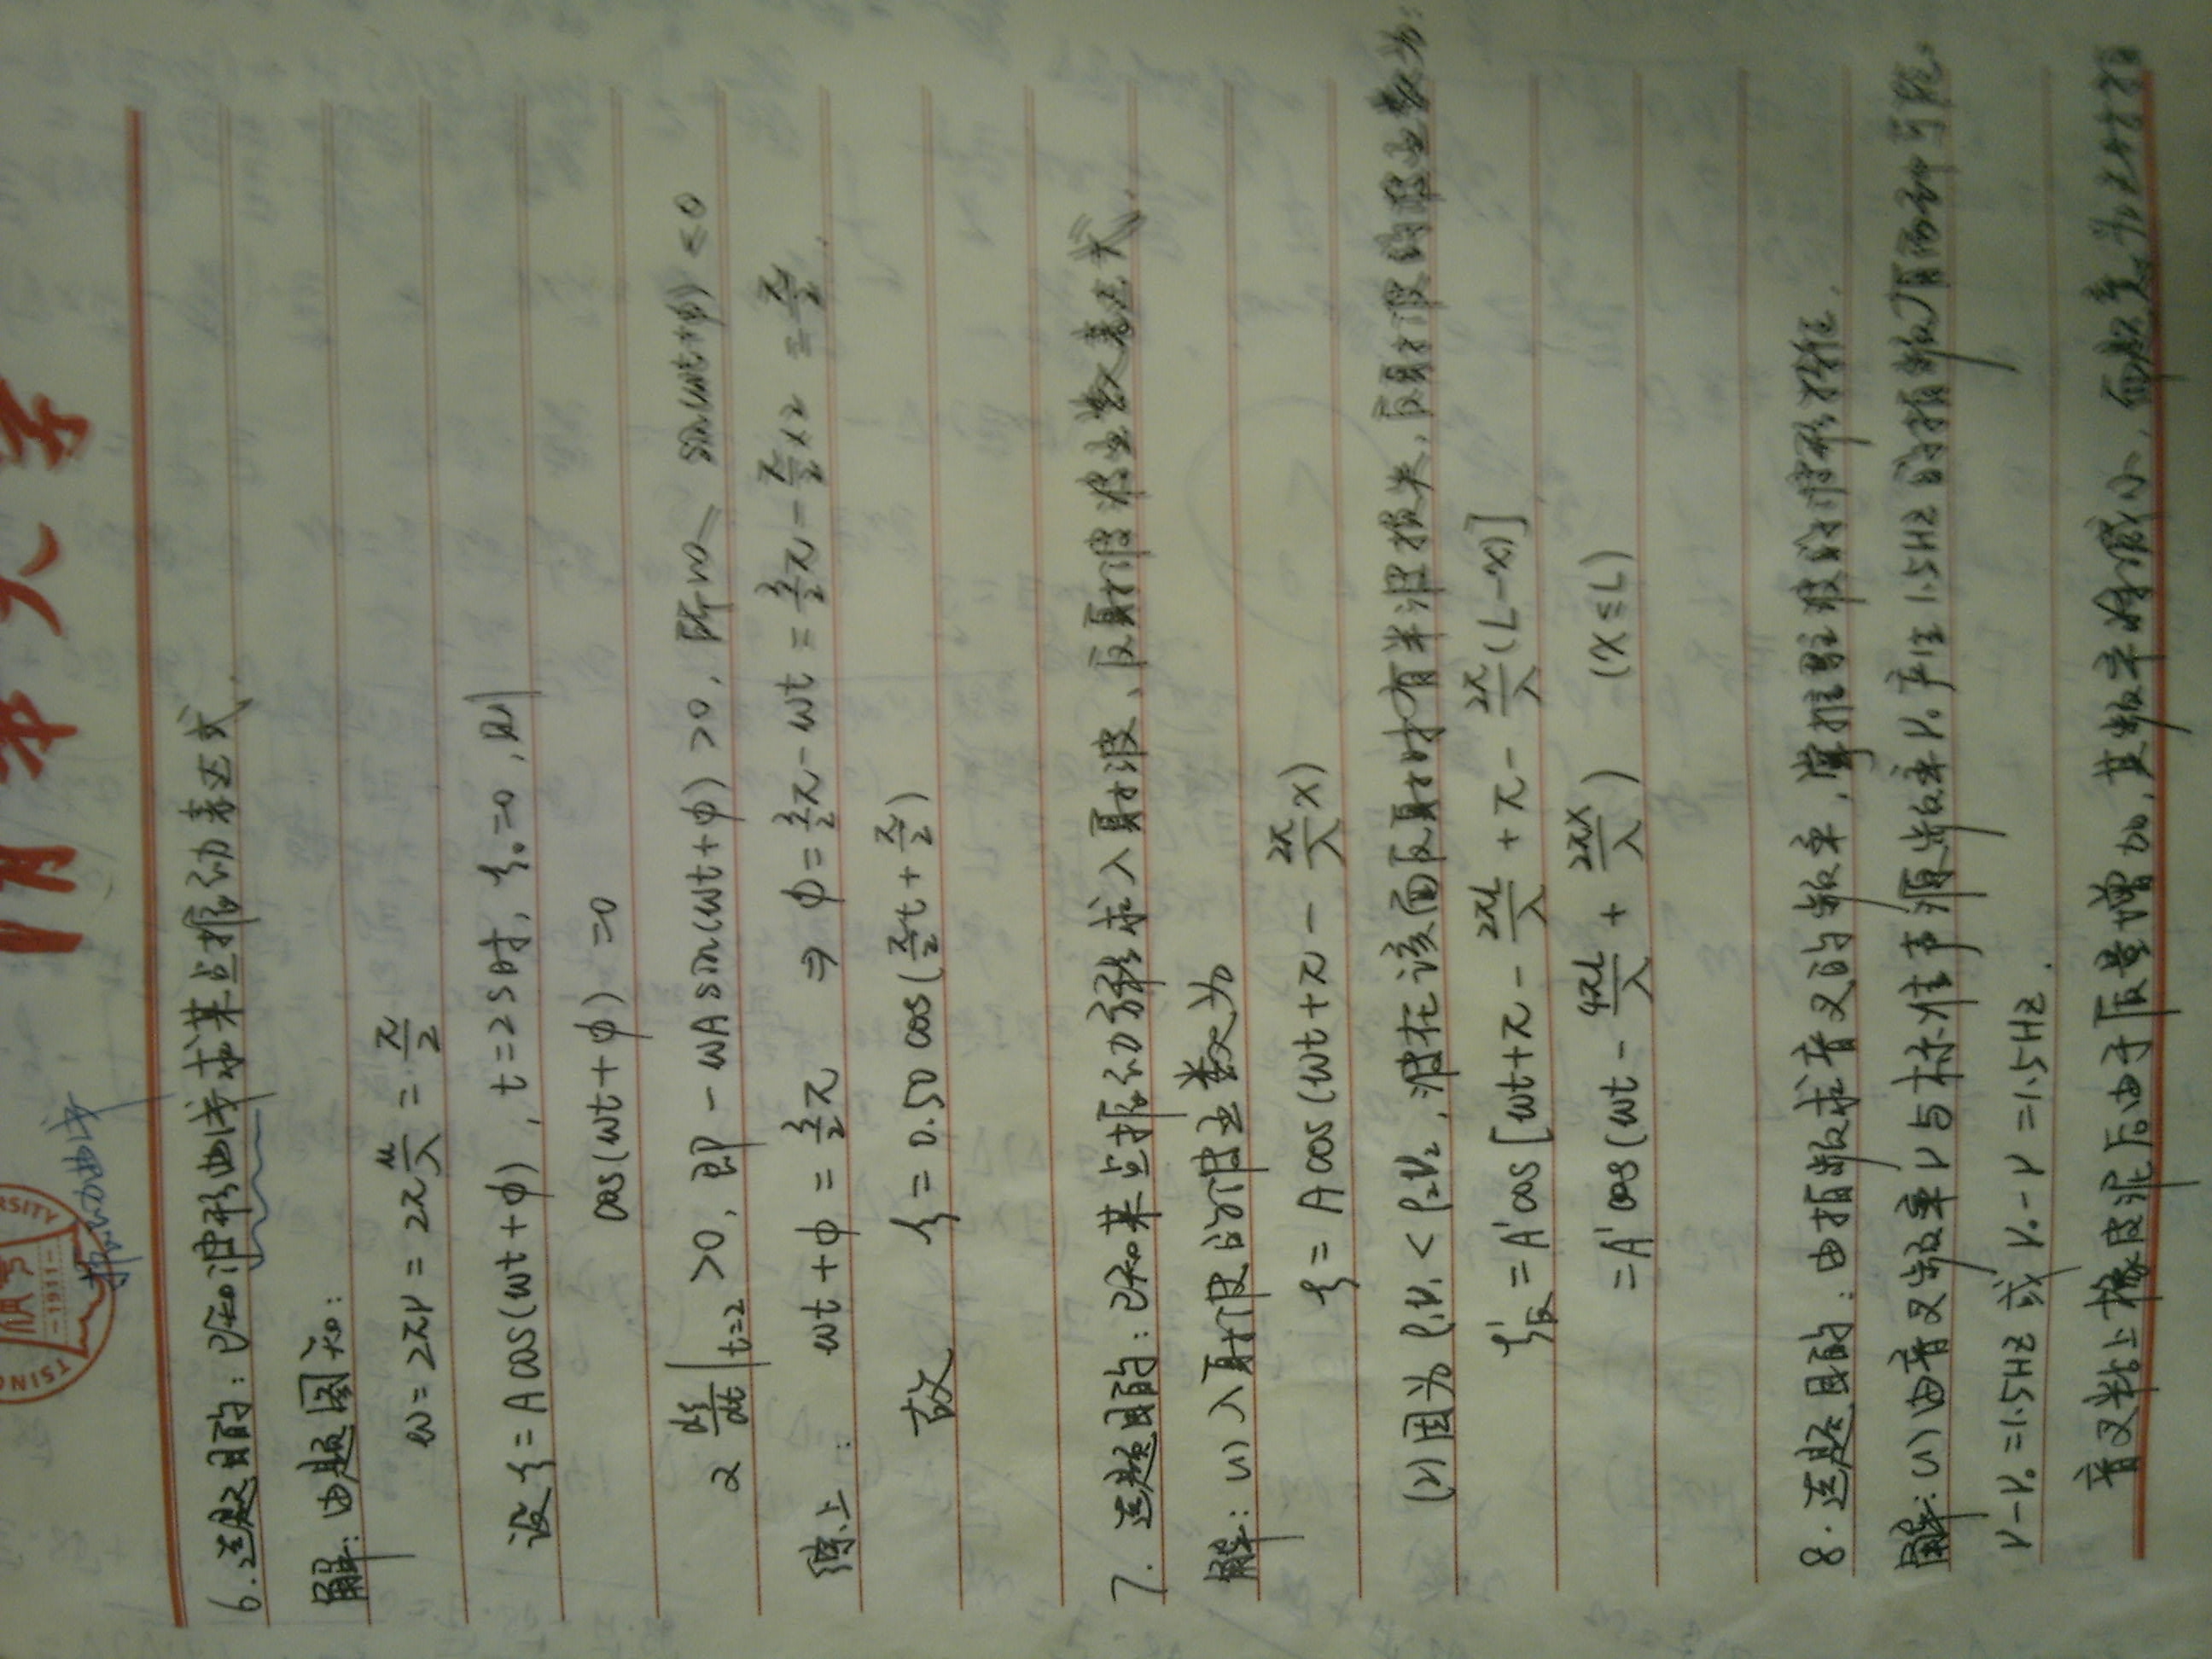 清华大学
1911
振动曲线
6.选题目的：已知波形曲线求某点振动表达式.
解：由题图知：
ω = 2πν = 2π u/λ = π/2
设 ξ = A cos(ωt + φ), t = 2s时, ξ₀ = 0, 则
cos(ωt + φ) = 0
又 dξ/dt |t=2 > 0, 即 - ωA sin(ωt + φ) > 0, 所以 sin(ωt + φ) < 0
综上： ωt + φ = 3/2 π ⇒ φ = 3/2 π - ωt = 3/2 π - π/2 × 2 = π/2.
故 ξ = 0.50 cos(π/2 t + π/2)
7. 选题目的：已知某点振动方程求入射波、反射波波函数表达式.
解：(1) 入射波的波函数为
ξ = A cos(ωt + π - 2π/λ x)
(2) 因为 ρ₁ν₁ < ρ₂ν₂, 波在该面反射时有半波损失, 反射波的波函数为：
ξ'反 = A' cos[ωt + π - 2πL/λ + π - 2π/λ (L - x)]
= A' cos(ωt - 4πL/λ + 2πx/λ) (x ≤ L)
8. 选题目的：由拍频求音叉的频率, 掌握驻波的波形特征.
解：(1) 由音叉频率ν与标准声源频率ν₀产生1.5HZ的拍频, 有两种可能.
ν - ν₀ = 1.5HZ 或 ν₀ - ν = 1.5HZ.
音叉粘上橡皮泥后由于质量增加, 其频率将减小, 而题意为